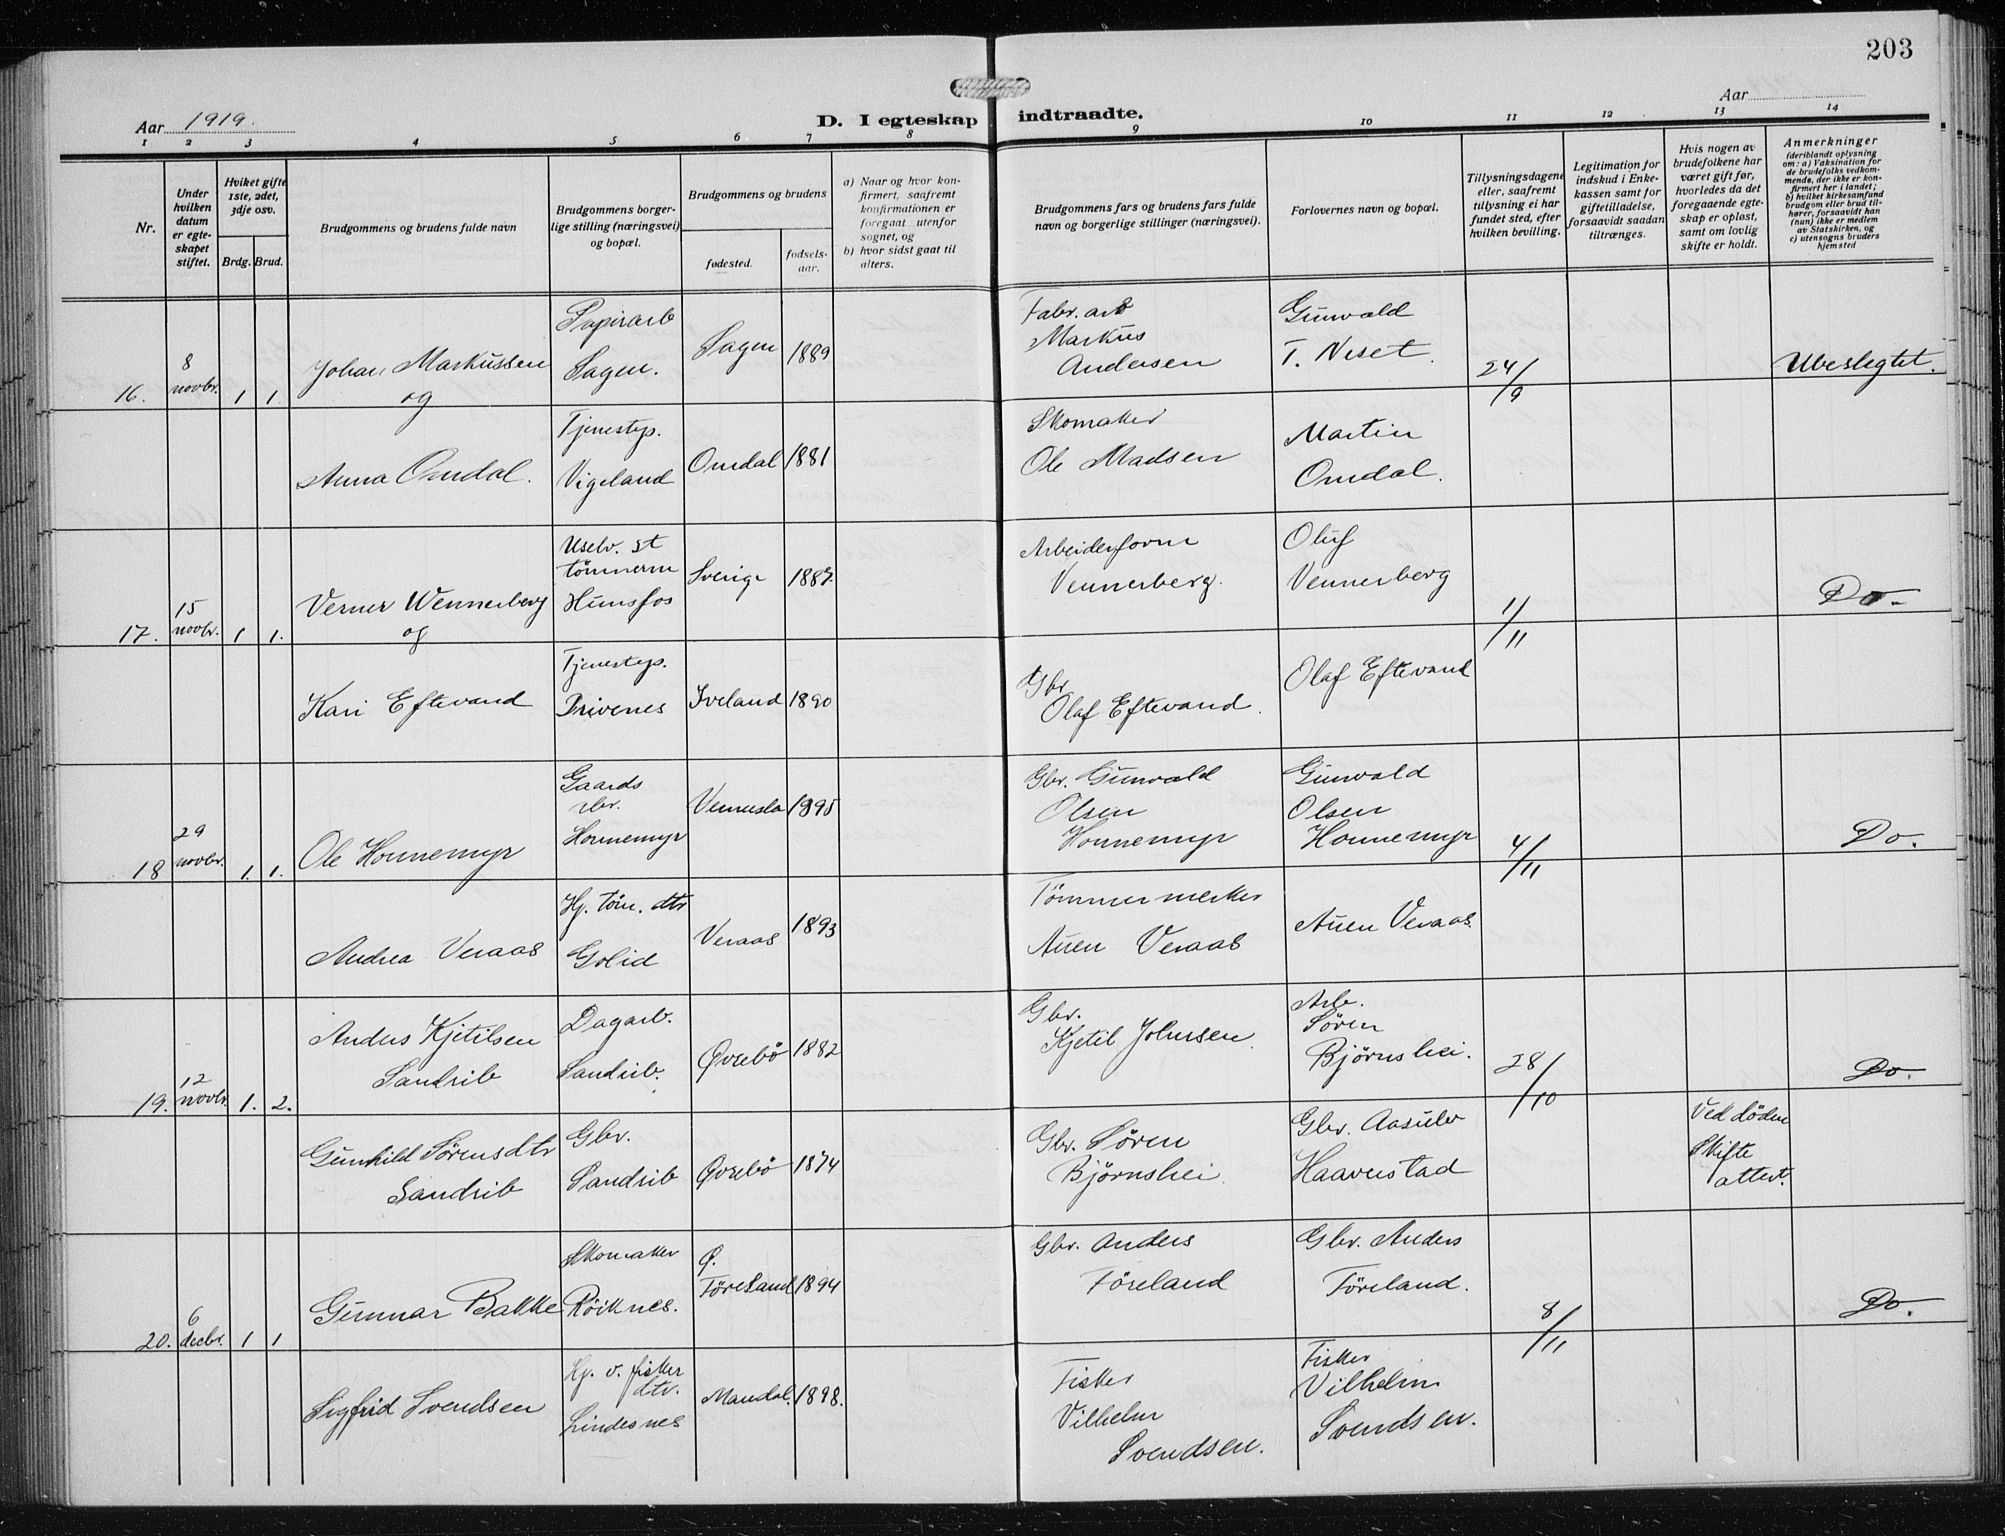 203
Aar 1919.
D. I egteskap indtraadte.
Aar
1 2 3 4 5 6 7 8 9 10 11 12 13 14
Nr.
Under hvilken datum er egteskapet stiftet.
Hvilket gifte 1ste, 2det, 3dje osv.
Brdg. Brud.
Brudgommens og brudens fulde navn
Brudgommens borgerlige stilling (næringsvei) og bopæl.
Brudgommens og brudens
fødested.
fødselsaar.
a) Naar og hvor konfirmert, saafremt konfirmationen er foregaat utenfor sognet, og
b) hvor sidst gaat til alters.
Brudgommens fars og brudens fars fulde navn og borgerlige stillinger (næringsvei).
Forlovernes navn og bopæl.
Tillysningsdagene eller, saafremt tillysning ei har fundet sted, efter hvilken bevilling.
Legitimation for indskud i Enkekassen samt for giftetilladelse, forsaavidt saadan tiltrænges.
Hvis nogen av brudefolkene har været gift før, hvorledes da det foregaaende egteskap er opløst, samt om lovlig skifte er holdt.
Anmerkninger
(deriblandt oplysning om: a) Vaksination for de brudefolks vedkommende, der ikke er konfirmert her i landet; b) hvilket kirkesamfund brudgom eller brud tilhører, forsaavidt han (hun) ikke er medlem av Statskirken, og c) utensogns bruders hjemsted
16. 8 novbr. 1 1. Johan Markussen og
Papirarb Sagen.
Sagen 1889
Fabr. arb Markus Andersen
Gunvald T. Neset.
24/9
Ubeslegtet.
Anna Omdal.
Tjenestep. Vigeland
Omdal 1881
Skomaker Ole Madsen
Martin Omdal.
17. 15 novbr. 1 1. Verner Wennerberg og
Uselv. st tømmerm Hunsfos
Sverige 1887.
Arbeiderform Vennerberg.
Oluf Vennerberg
1/11
Do.
Kari Eftevand
Tjenestep. Drivenes
Iveland 1890
Gbr Olaf Eftevand.
Olaf Eftevand
18 29 novbr. 1. 1. Ole Honnemyr
Gaardsbr. Honnemyr
Vennesla 1895
Gbr. Gunvald Olsen Honnemyr
Gunvald Olsen Honnemyr
4/11
Do.
Andrea Veraas
Hj. tøm. dtr Golid
Veraas 1893
Tømmermerker Auen Veraas
Auen Veraas.
19. 12 novbr. 1. 2. Anders Kjetilsen Sandrib
Dagarb. Sandrib.
Øvrebø 1882
Gbr. Kjetil Johnsen.
Arb. Søren Bjørnshei.
28/10
Do.
Gunhild Sørensdtr Sandrib
Gbr. Sandrib
Øvrebø 1874
Gbr. Søren Bjørnshei.
Gbr. Aasulv Haaverstad
Ved døden Skifte attest.
20. 6 decbr. 1 1 Gunnar Bakke
Skomaker Røiknes.
Ø. Føreland 1894
Gbr. Anders Føreland
Gbr. Anders Føreland.
8/11
Do.
Sigfrid Svendsen
Hj. v. fisker dtr. Lindesnes
Mandal. 1898.
Fisker Vilhelm Svendsen.
Fisker Vilhelm Svendsen.